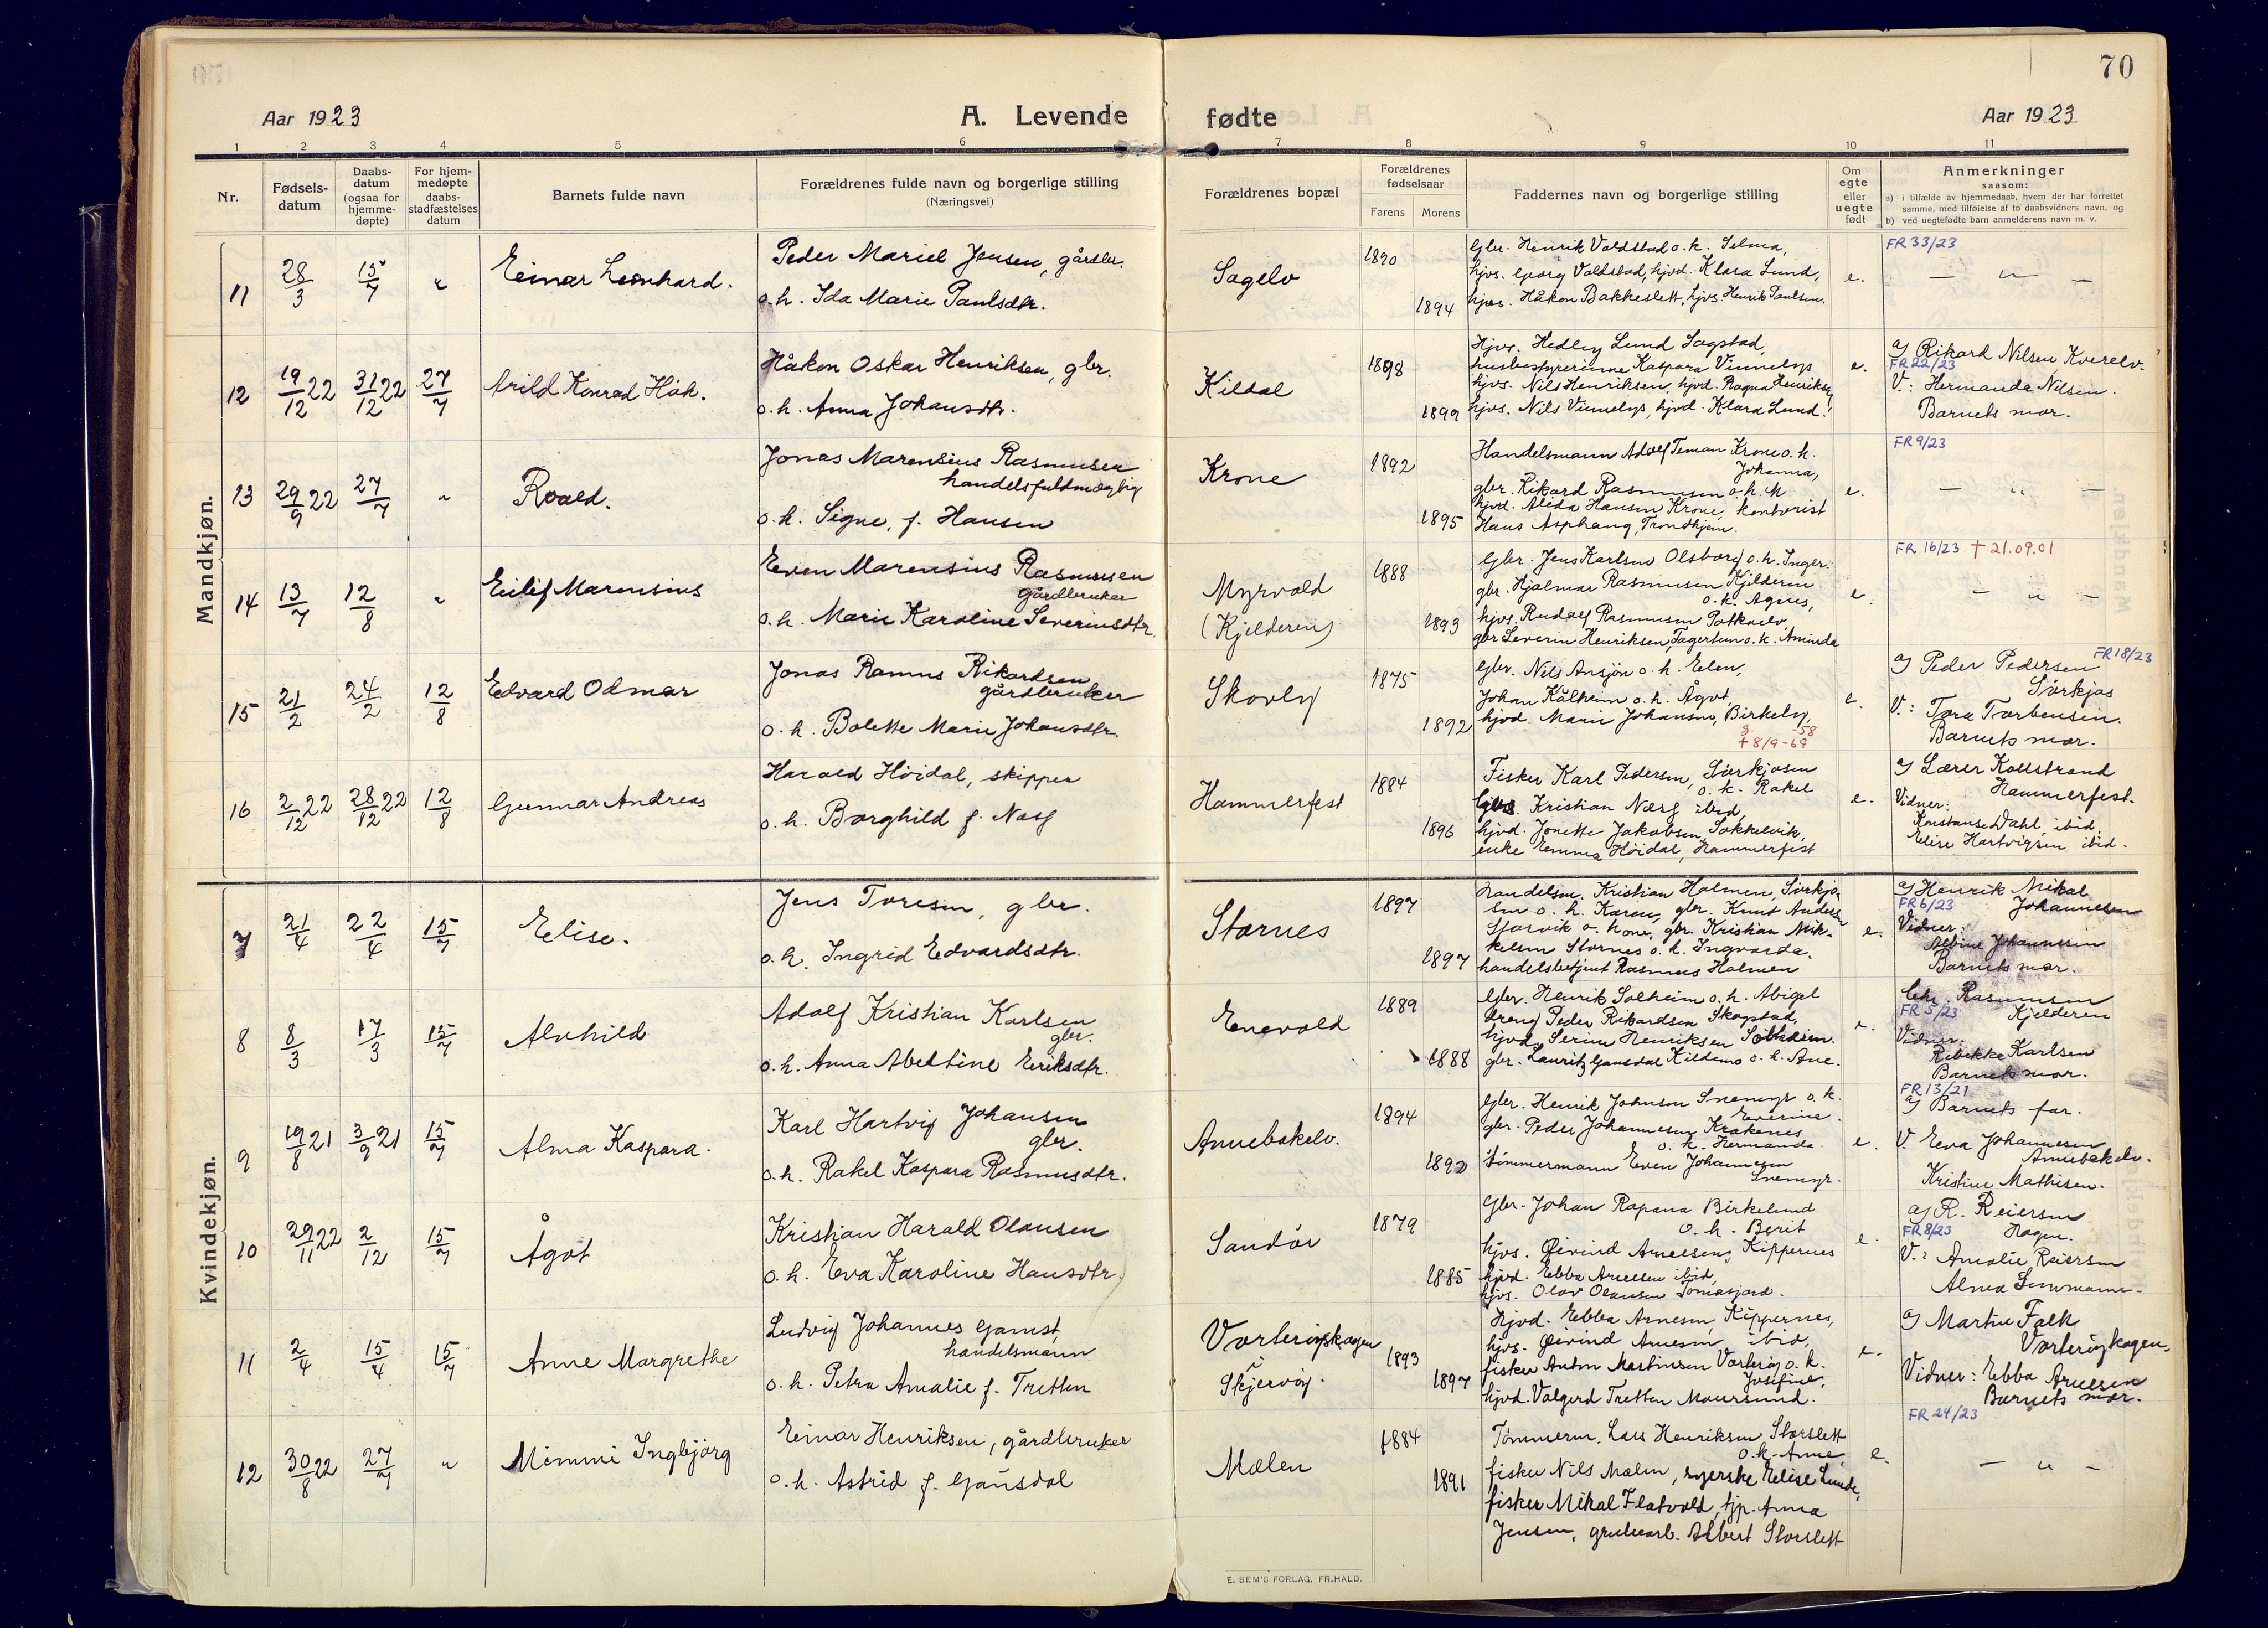 70
Aar 1923
A. Levende fødte
Aar 1923
1 2 3 4 5 6 7 8 9 10 11
Nr.
Fødsels-
datum
Daabs-
datum
(ogsaa for
hjemme-
døpte)
For hjem-
medøpte
daabs-
stadfæstelses
datum
Barnets fulde navn
Forældrenes fulde navn og borgerlige stilling
(Næringsvei)
Forældrenes bopæl
Forældrenes
fødselsaar
Farens Morens
Faddernes navn og borgerlige stilling
Om
egte
eller
uegte
født
Anmerkninger
saasom:
a) i tilfælde av hjemmedaab, hvem der har forrettet
samme, med tilføielse af to daabsvidners navn, og
b) ved uegtefødte barn anmelderens navn m. v.
Mandkjøn.
11 28/3 15/7 " Einar Leonhard.
Peder Mariel Jensen, gårdbr.
o. h. Ida Marie Paulsdtr.
Sagelv
1890
1894
Gbr. Henrik Voldstad o. h. Selma,
hjvs. Georg Voldstad, hjvd. Klara Lund,
hjvs. Håkon Bakkeslett, hjvs. Henrik Paulsen.
e.
FR 33/23
— " —
12 19/12 22 31/12 22 27/7 Arild Konrad Hök.
Håkon Oskar Henriksen, gbr.
o. h. Anna Johansdtr.
Kildal
1898
1899
Hjvs. Hedley Lund Sagstad,
husbestyrerinne Kaspara Vinnelys
hjvs. Nils Henriksen, hjvd. Ragna Henriksen,
hjvs. Nils Vinnelys, hjvd. Klara Lund.
e.
a) Rikard Nilsen Kverelv.
FR 22/23
V.: Hermanda Nilsen.
Barnets mor.
13 29/9 22 27/7 " Roald.
Jonas Marensius Rasmusen
handelsfuldmægtig
o. h. Signe, f. Hansen
Krone
1892
1895
Handelsmann Adolf Teman Krone o. h.
Johanna,
gbr. Rikard Rasmussen o. h. M
hjvd. Alida Hansen Krone, kontorist
Hans Asphaug, Trondhjem.
e.
FR 9/23
— " —
14 13/7 12/8 " Eilif Marensius
Even Marensius Rasmussen
gårdbruker
o. h. Marie Karoline Severinsdtr.
Myrvold
(Kjelderen)
1888
1893
Gbr. Jens Karlsen Olsborg o. h. Inger.
gbr. Hjalmar Rasmussen Kjelderen
o. h. Agnes,
hjvs. Rudolf Rasmussen
gbr Severin Henriksen, Fagertun o. h. Aminda
e.
FR 16/23 † 21.09.01
— " —
15 21/2 24/2 12/8 Edvard Odmar
Jonas Ramus Rikardsen
gårdbruker
o. h. Bolette Marie Johansdtr.
Skovly
1875
1892
Gbr. Nils Ansjøn o. h. Elen,
Johan Kålheim o. h. Ågot,
hjvd. Marie Johansen, Birkely,
-58
† 8/9-69
e.
FR 18/23
a) Peder Pedersen
Sørkjos
V.: Tora Torbensen.
Barnets mor.
16 2/12 22 28/12 22 12/8 Gunnar Andreas
Harald Höidal, skipper
o. h. Borghild f. Næss
Hammerfest
1884
1896
Fisker Karl Pedersen, Sörkjosen
o. h. Rakel
Kristian Næss ibid,
hjvd. Jonette Jakobsen, Sokkelvik,
enke Emma Höidal, Hammerfest
e.
a) Lærer Kollstrand
Hammerfest.
Vidner:
Konstanse Dahl, ibid.
Elise Hartvigsen ibid.
Kvindekjøn.
7 21/4 22/4 15/7 Elise.
Jens Toresen, gbr.
o. h. Ingrid Edvardsdtr.
Stornes
1897
1897
handelsm. Kristian Holmen, Sörkjo-
sen o. h. Karen, gbr. Knut Andersen
Storvik o. kone, gbr. Kristian Mik-
kelsen Stornes o. h. Ingvarda.
handelsbetjent Rasmus Holmen
e.
a) Henrik Mikal
FR 6/23 Johannesen
Vidner:
Albine Johannesen
Barnets mor.
8 8/3 17/3 15/7 Alvhild
Adolf Kristian Karlsen
gbr.
o. h. Anna Abeltine Eriksdtr.
Enevold
1889
1888
Gbr. Henrik Solheim o. h. Abigel
dreng Peder Rikardsen Skogstad,
hjvd. Serine Henriksen Solheim.
gbr. Lauritz Gausdal Kildemo o. h. Ane.
e.
Chr. Rasmussen
FR 5/23 Kjelderen
Vidner:
Rebekka Karlsen
Barnets mor.
9 19/8 21 3/9 21 15/7 Alma Kaspara.
Karl Hartvig Johansen
gbr.
o. h. Rakel Kaspara Rasmusdtr.
Annebakelv.
1894
1890
Gbr. Henrik Johnsen Snemyr o. h.
Everine.
gbr. Peder Johannesen Krakenes
o. h. Hermanda.
tömmermann Even Johannesen
Snemyr.
e.
FR 13/21
a) Barnets far.
V. Eva Johannesen
Annebakelv.
Kristine Mathisen.
10 29/11 22 2/12 15/7 Ågot
Kristian Harald Olausen
o. h. Eva Karoline Hansdtr.
Sandör
1879
1885
Gbr. Johan Rapana Birkelund
o. h. Berit
hjvs. Øivind Arnesen, Kippernes
hjvd. Ebba Arnesen ibid,
hjvs. Olav Olausen Tomasjord.
e.
a) R. Reiersen
FR 8/23 Hagen.
V.: Amalie Reiersen
Alma
11 2/4 15/4 15/7 Anne Margrethe
Ludvig Johannes Gamst,
handelsmann
o. h. Petra Amalie f. Tretten
Vorteröyskagen
Skjervöy.
1893
1897
Hjvd. Ebba Arnesen, Kippernes,
hjvs. Øivind Arnesen, ibid,
fisker Anton Martinsen Vorteröy o. h.
Josefine,
hjvd. Valgerd Tretten Maursund.
e.
a) Martin Falk
Vorteröyskagen.
Vidner: Ebba Arnesen
Barnets mor.
12 30/8 22 27/7 " Mimmi Ingbjörg
Einar Henriksen, gårdbruker
o. h. Astrid f. Gausdal
Mælen
1884
1891
Tömmerm. Lars Henriksen Storslett
o. h. Anne,
fisker Nils Mælen, syerske Elise Lunde,
fisker Mikal Flatvold, tjp. Anna
Jensen, grubearb. Albert Storslett
e.
FR 24/23
— " —
E. SEM'S FORLAG, FR.HALD.